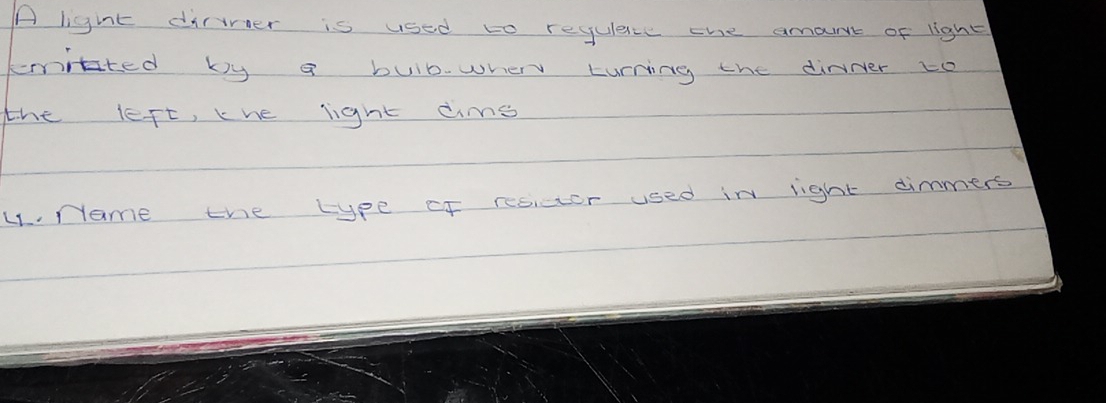 A light dimmer is used to regulate the amount of light
emitted by a bulb. when turning the dimmer to
the left, the light dims
4. Name the type of resistor used in light dimmers